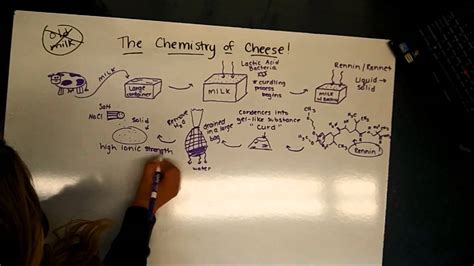 old
milk
The Chemistry of Cheese!
MILK
Large
container
Lactic Acid
Bacteria
* curdling
process
begins
MILK
Rennin/Rennet
Liquid →
Solid
MILK
Salt
NaCl
Solid
high ionic strength
Remove
H2O
drained
in a large
bag
water
Condences into
gel-like substance
"curd"
Rennin